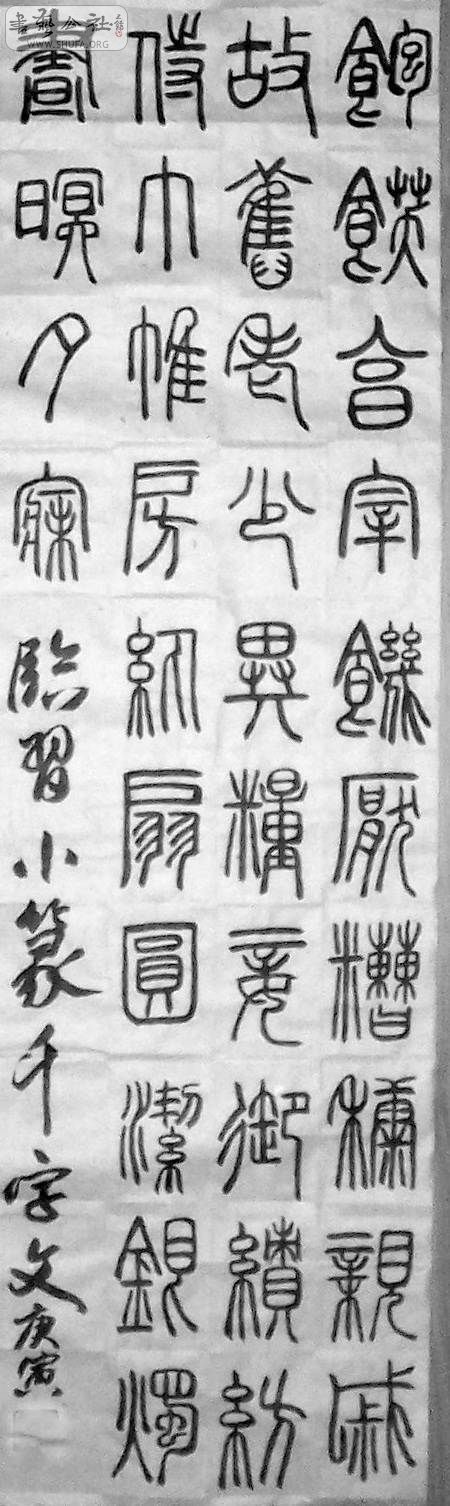 飽飫亯宰饑厭糟穅親戚
故舊老少異糧妾御績紡
侍巾帷房紈扇圓潔銀燭
晝暝夕寐臨習小篆千字文庚寅
書藝公社
WWW.SHUFA.ORG